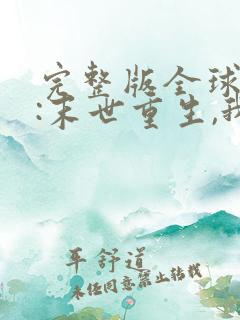 完整版全球
:末世重生,我
平舒道
未经同意禁止转载